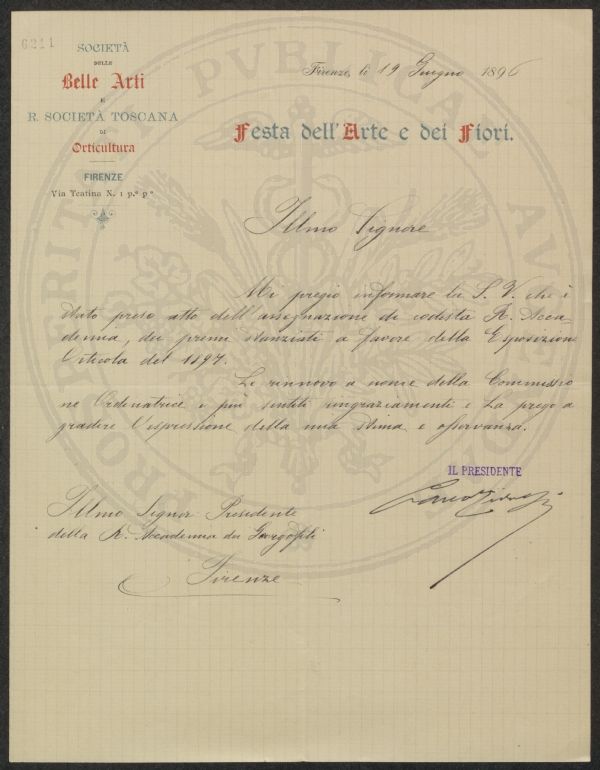 6211
SOCIETÀ
DELLE
Belle Arti
E
R. SOCIETÀ TOSCANA
DI
Orticultura
FIRENZE
Via Teatina N. 1 p.º pº
Firenze, li 19 Giugno 1896
Festa dell'Arte e dei Fiori.
Illmo Signore
Mi pregio informare la S. V. che è
stato preso atto dell'assegnazione di codesta R. Acca-
demia, dei premi stanziati a favore della Esposizione
Viticola del 1897.
Le rinnovo a nome della Commissio
ne Ordinatrice i più sentiti ringraziamenti e La prego a
gradire l'espressione della mia stima e osservanza.
IL PRESIDENTE
Illmo Signor Presidente
della R. Accademia dei Georgofili
Firenze
PROSPERITATI PVBLICAE AVGENDAE